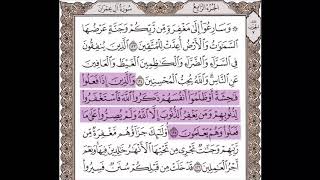 الجزء الرابع
سورة آل عمران
۞ وَسَارِعُوٓا۟ إِلَىٰ مَغْفِرَةٍ مِّن رَّبِّكُمْ وَجَنَّةٍ عَرْضُهَا
ٱلسَّمَٰوَٰتُ وَٱلْأَرْضُ أُعِدَّتْ لِلْمُتَّقِينَ ١٣٣ ٱلَّذِينَ يُنفِقُونَ
فِى ٱلسَّرَّآءِ وَٱلضَّرَّآءِ وَٱلْكَٰظِمِينَ ٱلْغَيْظَ وَٱلْعَافِينَ
عَنِ ٱلنَّاسِ وَٱللَّهُ يُحِبُّ ٱلْمُحْسِنِينَ ١٣٤ وَٱلَّذِينَ إِذَا فَعَلُوا۟
فَٰحِشَةً أَوْ ظَلَمُوٓا۟ أَنفُسَهُمْ ذَكَرُوا۟ ٱللَّهَ فَٱسْتَغْفَرُوا۟
لِذُنُوبِهِمْ وَمَن يَغْفِرُ ٱلذُّنُوبَ إِلَّا ٱللَّهُ وَلَمْ يُصِرُّوا۟ عَلَىٰ مَا
فَعَلُوا۟ وَهُمْ يَعْلَمُونَ ١٣٥ أُو۟لَٰٓئِكَ جَزَآؤُهُم مَّغْفِرَةٌ مِّن
رَّبِّهِمْ وَجَنَّٰتٌ تَجْرِى مِن تَحْتِهَا ٱلْأَنْهَٰرُ خَٰلِدِينَ فِيهَا وَنِعْمَ
أَجْرُ ٱلْعَٰمِلِينَ ١٣٦ قَدْ خَلَتْ مِن قَبْلِكُمْ سُنَنٌ فَسِيرُوا۟